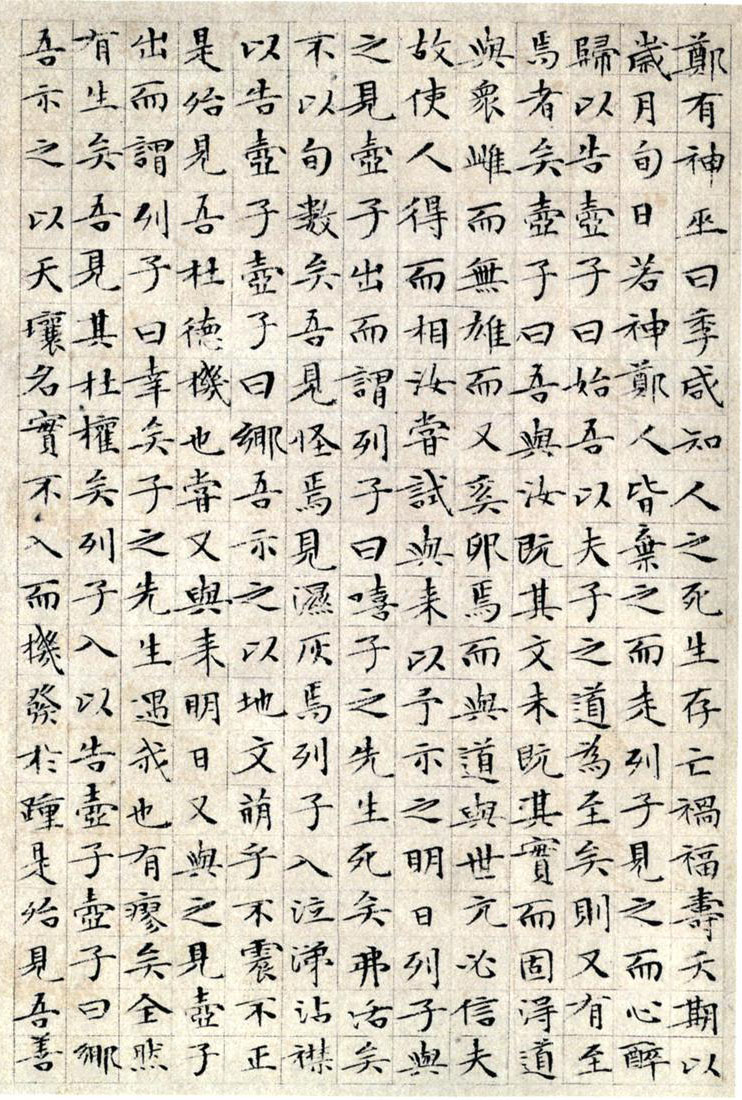 鄭有神巫曰季咸知人之死生存亡禍福壽夭期以
歲月旬日若神鄭人皆棄之而走列子見之而心醉
歸以告壺子曰始吾以夫子之道為至矣則又有至
焉者矣壺子曰吾與汝既其文未既其實而固得道
與衆雌而無雄而又奚卵焉而與道與世亢必信夫
故使人得而相汝嘗試與来以予示之明日列子與
之見壺子出而謂列子曰嘻子之先生死矣弗活矣
不以旬數矣吾見怪焉見濕灰焉列子入泣涕沾襟
以告壺子壺子曰鄉吾示之以地文萌乎不震不正
是殆見吾杜德機也嘗又與来明日又與之見壺子
出而謂列子曰幸矣子之先生遇我也有瘳矣全然
有生矣吾見其杜權矣列子入以告壺子壺子曰鄉
吾示之以天壤名實不入而機發於踵是殆見吾善